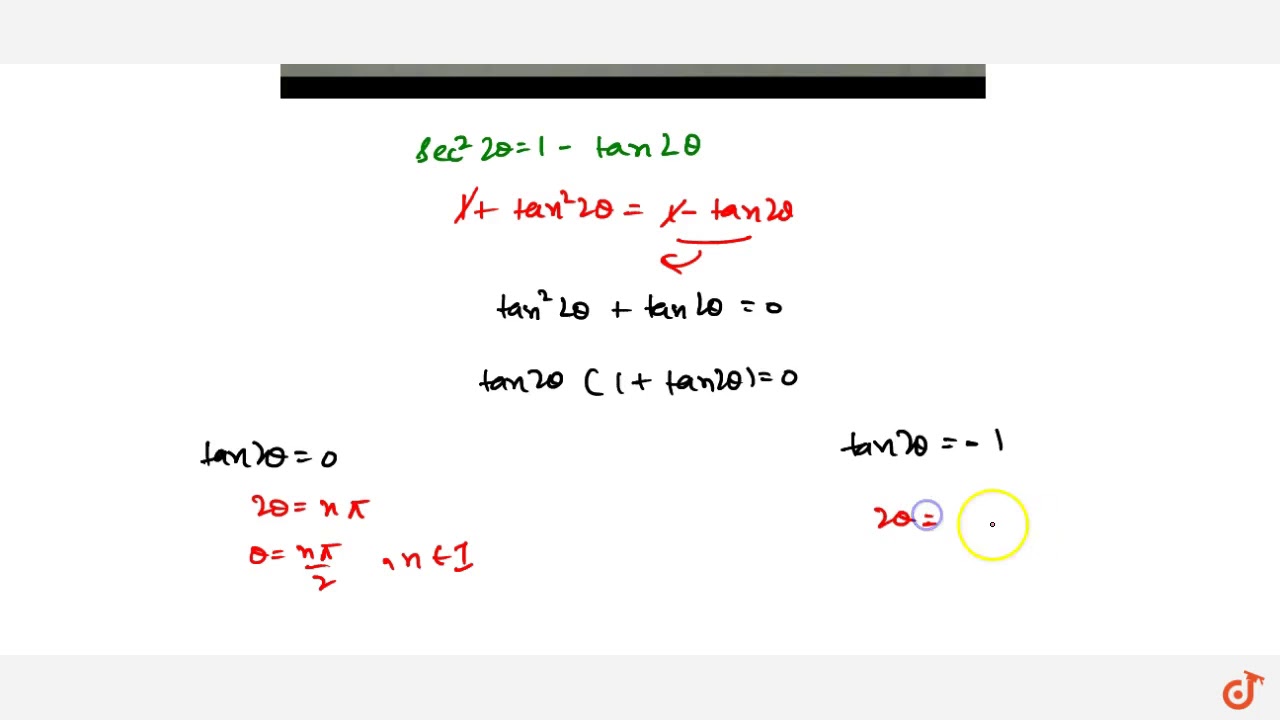 sec² 2θ = 1 - tan 2θ
1 + tan² 2θ = 1 - tan 2θ
tan² 2θ + tan 2θ = 0
tan 2θ (1 + tan 2θ) = 0
tan 2θ = 0
2θ = nπ
θ = nπ/2 , n ∈ I
tan 2θ = - 1
2θ =